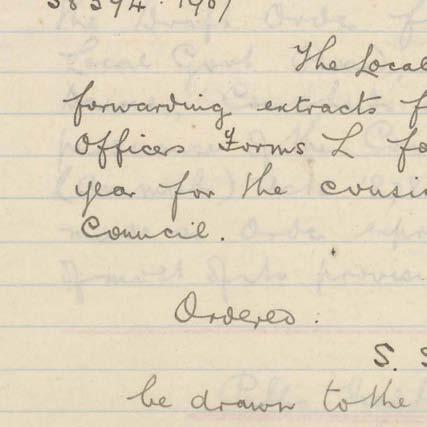 58394. 1907
The Local
forwarding extracts f
Officers Forms L fo
year for the consi
Council.
Ordered.
S. S
be drawn to the